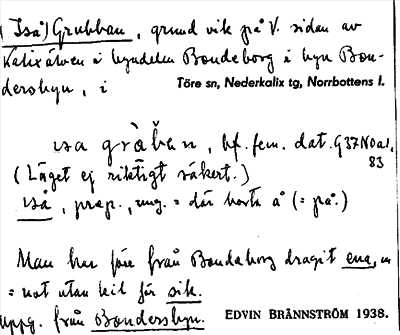 (Iså) Grubban, grund vik på V. sidan av
Kalixälven i byndelen Bondeborg i byn Bon-
dersbyn, i Töre sn, Nederkalix tg, Norrbottens l.
bf. fem. dat. G37N0a1,
83
(Läget ej riktigt säkert.)
iså, prep., ung. = där borta å (= på.)
Man har före från Bondeborg dragit ena, en
= not utan kil för sik.
Uppg. från Bondersbyn. EDVIN BRÄNNSTRÖM 1938.